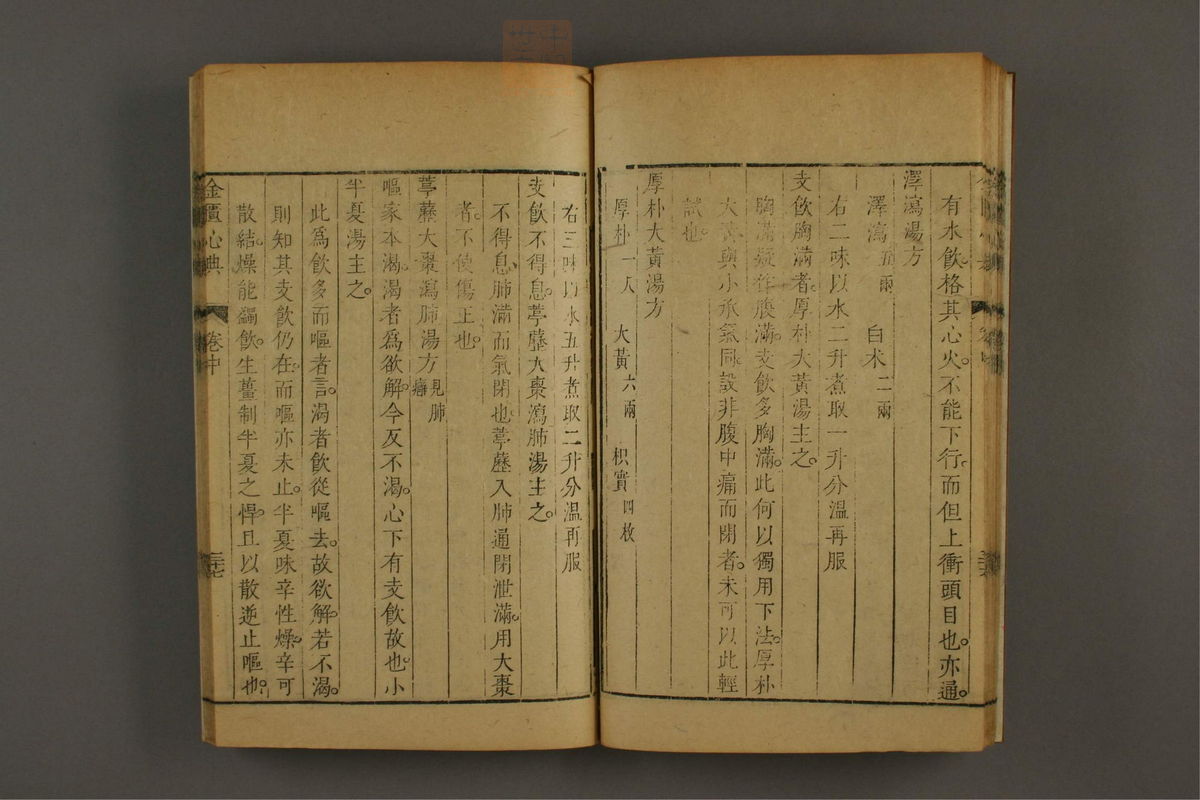 有水飲格其心火不能下行而但上衝頭目也亦通
澤瀉湯方
澤瀉五兩 白朮二兩
右二味以水二升煮取一升分溫再服
支飲胸滿者厚朴大黃湯主之
胸滿疑作腹滿支飲多胸滿此何以獨用下法厚朴
大黃與小承氣同設非腹中痛而閉者未可以此輕
試也
厚朴大黃湯方
厚朴一尺 大黃六兩 枳實四枚
右三味以水五升煮取二升分溫再服
支飲不得息葶藶大棗瀉肺湯主之
不得息肺滿而氣閉也葶藶入肺通閉泄滿用大棗
者不使傷正也
葶藶大棗瀉肺湯方見肺癰
嘔家本渴渴者為欲解今反不渴心下有支飲故也小
半夏湯主之
此為飲多而嘔者言渴者飲從嘔去故欲解若不渴
則知其支飲仍在而嘔亦未止半夏味辛性燥辛可
散結燥能蠲飲生薑制半夏之悍且以散逆止嘔也
金匱心典 卷中 二十七